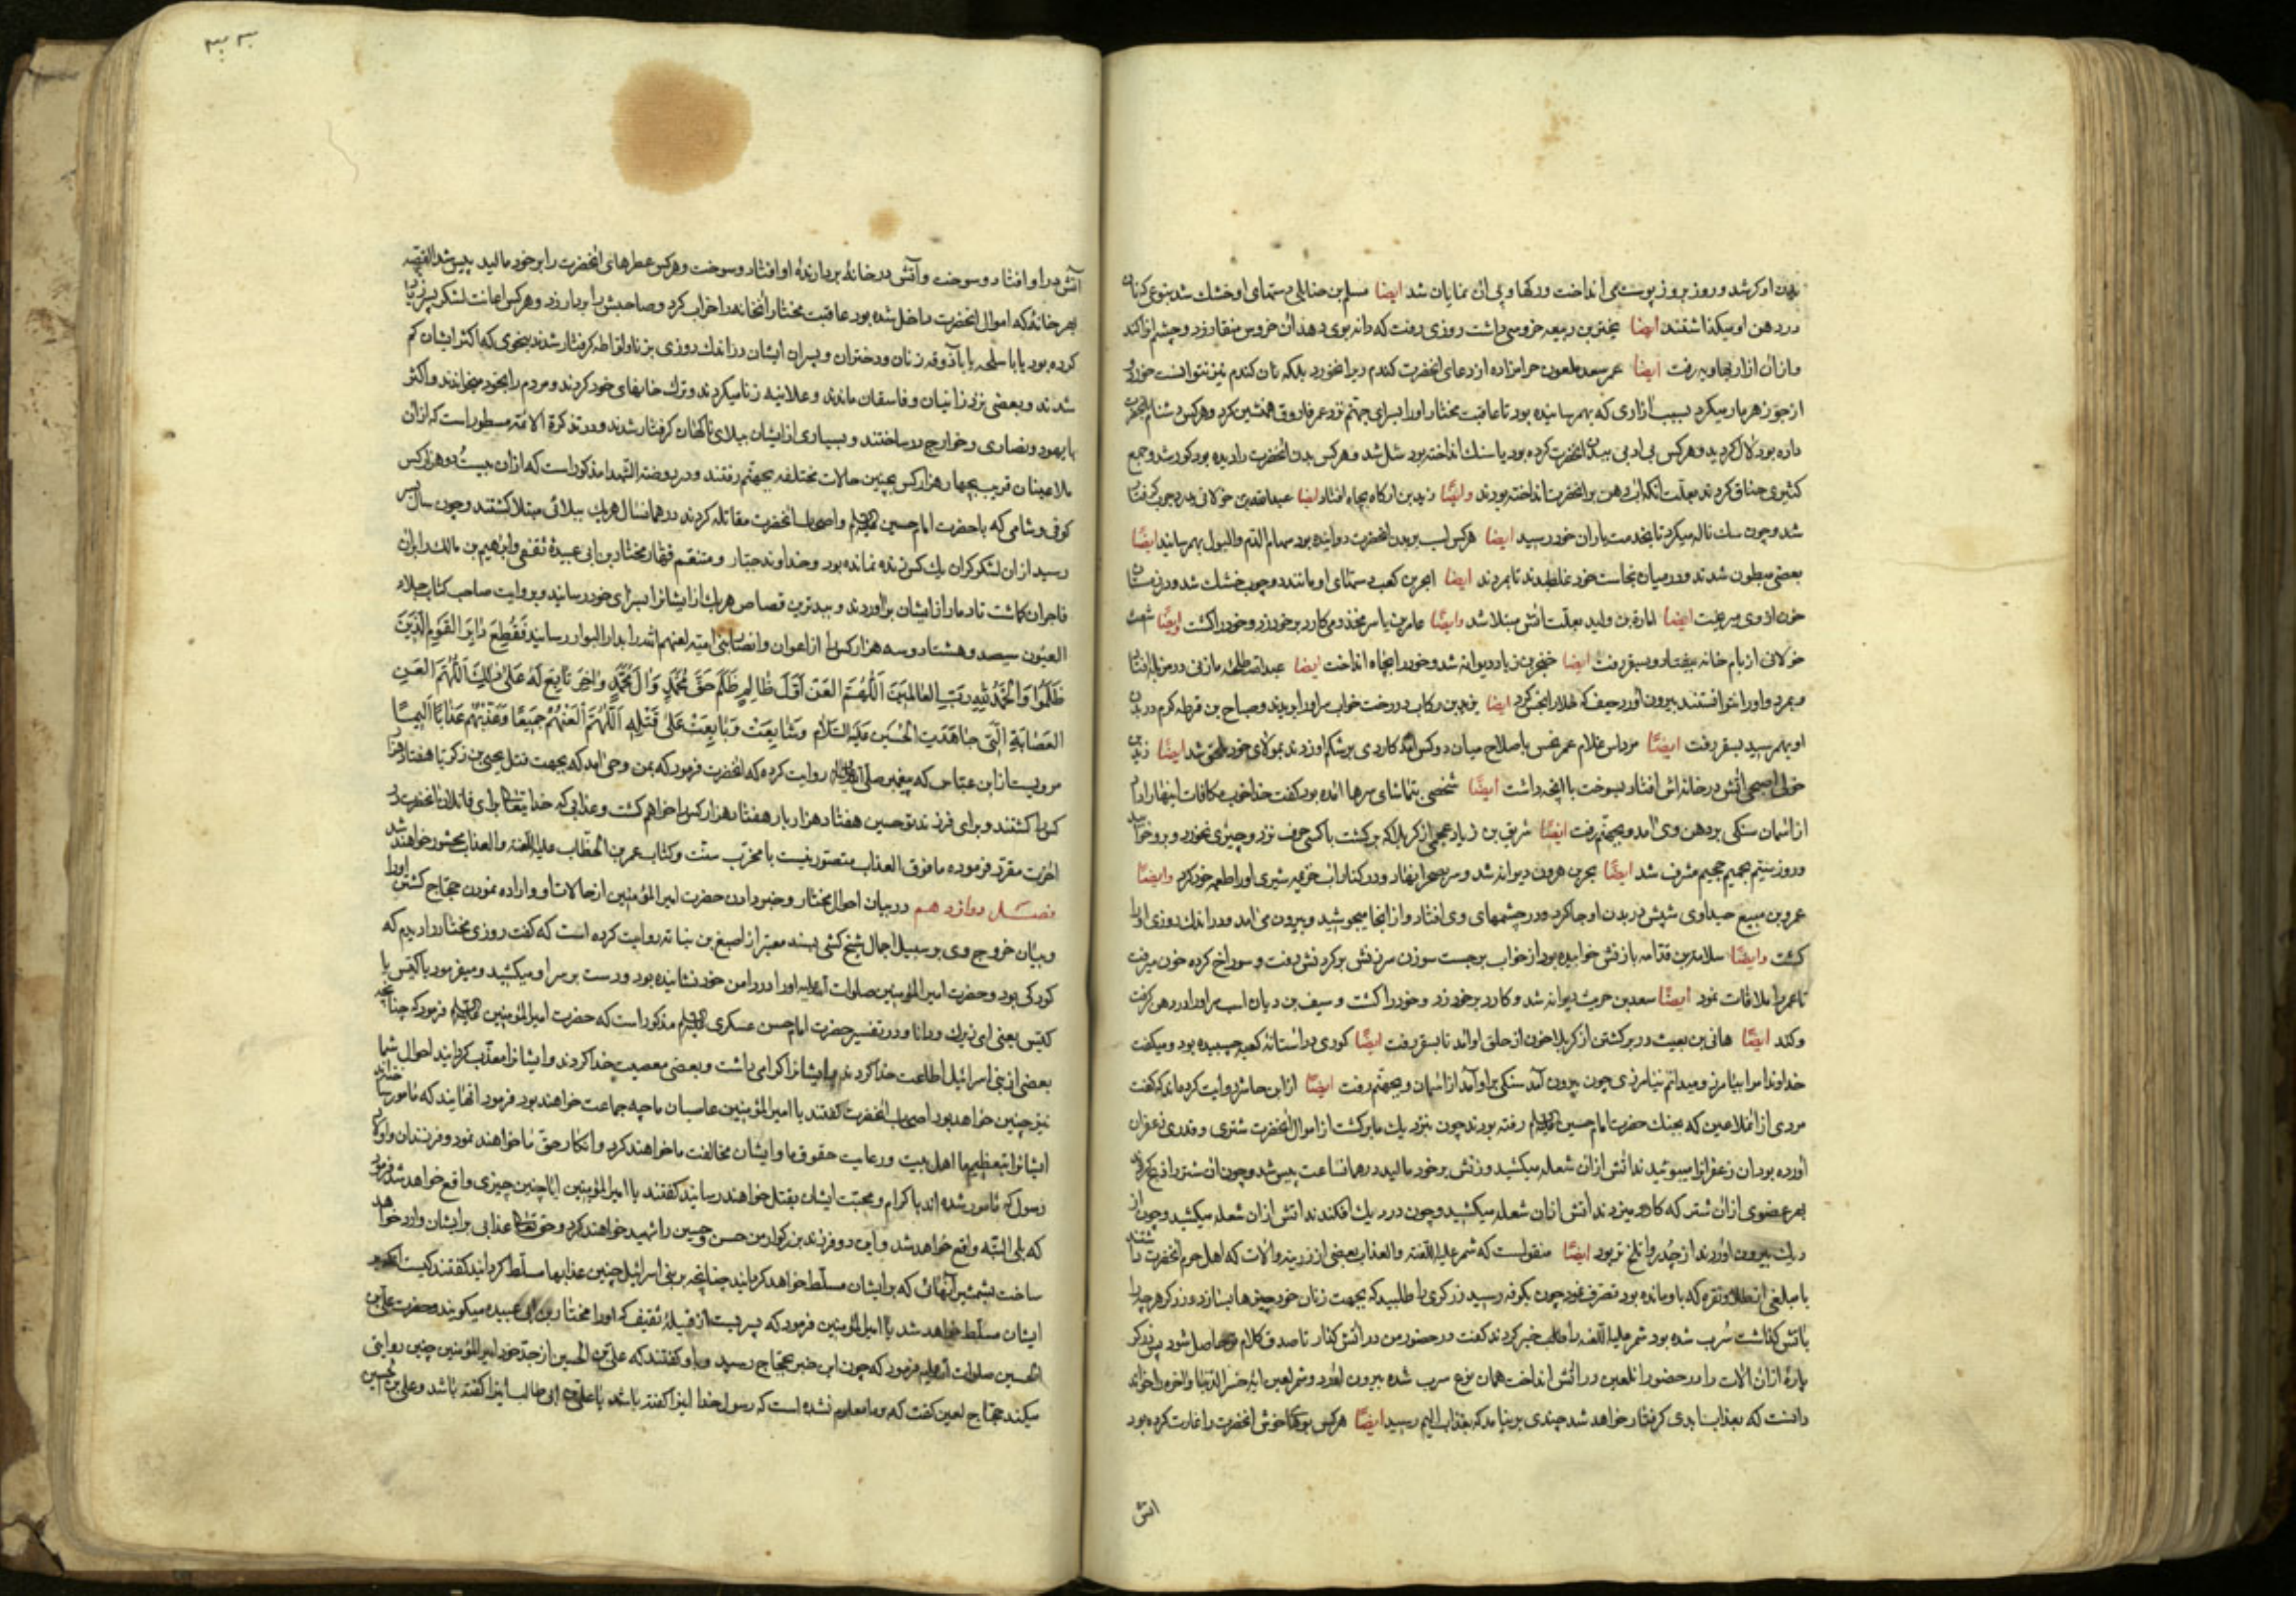 بدن او کر شد و روز بروز پوست می انداخت و رکها و پی ان نمایان شد ایضا مسلم بن دستهای او خشک شد بنوعی که نان
در دهن او میکذاشتند ایضا بن ربیعه خروسی داشت روزی رفت که دانه بوی دهد ان خروس منقار زد و چشم او را کند
و از ان ازار بهاویه رفت ایضا عمر سعد ملعون حرامزاده از دعای انحضرت کندم ری را نخورد بلکه نان کندم نیز نتوانست خورد
از جو زهرمار میکرد بسبب ازاری که بهم رسانیده بود تا عاقبت مختار او را بسرای جهنم نزد عمر فاروق همنشین کرد و هر کس دشنام
داده بود لال کردید و هر کس بی ادبی ببدن انحضرت کرده بود یا سنک انداخته بود شل شد و هر کس بدن انحضرت را دیده بود کور شد و جمع
کثیری خناق کردند بعلت انکه اب دهن بر انحضرت انداخته بودند وایضًا زید بن ارکاه بچاه افتاد ایضا عبدالله بن خولانی
شد و چون سک ناله میکرد تا بخدمت یاران خود رسید ایضا هر کس اسب بر بدن انحضرت دوانیده بود سهام الدم والبول بهم رسانید ایضًا
بعضی مبطون شدند و در میان نجاست خود غلطیدند تا مردند ایضا ابجر بن کعب دستهای او مانند دو چوب خشک شد و در زمستان
خون از وی میریخت ایضا بن ولید بعلت اتش مبتلا شد وایضًا عامر بن یاسر مخذومی کارد بر خود زد و خود را کشت وایضًا
خولانی از بام خانه بیفتاد و بسقر رفت ایضا بن زیاد دیوانه شد و خود را بچاه انداخت ایضا عبدالله مازنی در مزبله افتاد
و بمرد و او را نتوانستند بیرون اورد حیف که خلا را نجس کرد ایضا بن رکاب در درخت خواب سر او را بریدند و صباح بن قرطه کرم در بدن
او بهم رسید بسقر رفت ایضًا مرداس غلام عمر نحس باصلاح میان دو کس امد کاردی بر شکم او زدند بمولای خود ملحق شد ایضًا
خولی اصبحی اتش در خانه اش افتاد بسوخت با انچه داشت ایضًا شخصی بتماشای سرها امده بود کفت خدا خوب مکافات اینها را داد
از اسمان سنکی بر دهن وی امد و بجهنم رفت ایضًا شریق بن زیاد عجمی از کربلا که برکشت با کسی حرف نزد و چیزی نخورد
و روز سیم بحمیم جحیم مشرف شد ایضًا بحر بن هرون دیوانه شد و سر بصحرا نهاد و در کنار اب شیری او را طعمه خود کرد وایضًا
عمرو بن صبیح صیداوی شپش در بدن او جا کرد و در چشمهای وی افتاد و از انجا میجوشید و بیرون می امد و در اندک روزی او را
کشت وایضًا سلامة بن قدامه با زنش خوابیده بود از خواب برجست سوزن سر زنش بر کردنش رفت و سوراخ کرده خون میرفت
تا عمر را ملاقات نمود ایضًا سعد بن حریث دیوانه شد و کارد بر خود زد و خود را کشت و سیف بن دیان اسب سر او را در دهن کرفت
و کند ایضًا هانی بن بعیث در برکشتن از کربلا خون از حلق او امد تا بسقر رفت ایضًا کوری در استانهٔ کعبه چسبیده بود و میکفت
خداوندا مرا بیامرز و میدانم نیامرزی چون بیرون امد سنکی بر او امد از اسمان و بجهنم رفت ایضًا از ابن حاشر روایت کرده اند که کفت
مردی از انملاعین که بجنک حضرت امام حسین علیه السلام رفته بودند چون بنزدیک ما برکشت از اموال انحضرت شتری و قدری زعفران
اورده بود ان زعفران را میسوئیدند اتش ازان شعله میکشید و زنش بر خود مالید در همانساعت پیس شد و چون ان شتر را ذبح کردند
بهر عضوی از ان شتر که کارد میزدند اتش ازان شعله میکشید و چون در دیک افکندند اتش ازان شعله میکشید و چون از
دیک بیرون اوردند از جدوار تلخ تر بود ایضًا منقولست که شمر علیه اللعنه والعذاب بعضی از زرینه و الات که اهل حرم انحضرت داشتند
با مبلغی از طلا و نقره که با او مانده بود تصرف نمود چون بکوفه رسید زرکری را طلبید که بجهت زنان خود چیزها بسازد زرکر هر چه را
باتش کذاشت سرب شده بود شمر علیه اللعنه را خبر کردند کفت در حضور من در اتش کذار تا صدق کلام تو حاصل شود پس زرکر
پارهٔ ازان الات را در حضور انلعین در اتش انداخت همان نوع سرب شده بیرون اورد و شمر لعین ایهٔ خسر الدنیا والاخره را خواند
دانست که بعذاب ابدی کرفتار خواهد شد چندی برنیامد که بعذاب الیم رسید ایضًا هر کس بویهای خوش انحضرت را غارت کرده بود
اتش
۳۳۰
آتش در او افتاد و سوخت و آتش در خانهٔ بردارندهٔ او افتاد و سوخت و هر کس عطرهای انحضرت را بر خود مالید پیس شد القصه
بهر خانهٔ که اموال انحضرت داخل شده بود عاقبت مختار انخانه را خراب کرد و صاحبش را بردار زد و هر کس اعانت لشکر پسر زیاد
کرده بود یا با سلحه یا باآذوقه زنان و دختران و پسران ایشان در اندک روزی بزنا و لواطه کرفتار شدند بنحوی که اکثر ایشان کم
شدند و بعضی نزد زانیان و فاسقان ماندند و علانیه زنا میکردند و ترک خانهای خود کردند و مردم را بخود میخواندند و اکثر
با یهود و نصاری و خوارج در ساختند و بسیاری از ایشان ببلای ناکهان کرفتار شدند و در تذکرة الائمه مسطور است که ازان
ملاعینان قریب بچهار هزار کس بچنین حالات مختلفه بجهنم رفتند و در روضة الشهدا مذکور است که ازان بیست و دو هزار کس
کوفی و شامی که با حضرت امام حسین علیه السلام واصحاب انحضرت مقاتله کردند در همانسال هر یک ببلائی مبتلا کشتند و چون سال
رسید ازان لشکر کران یک کس زنده نمانده بود و خداوند جبار و منتقم قهار مختار بن ابی عبیدهٔ ثقفی و ابراهیم بن مالک را بران
فاجران کماشت تا دمار از ایشان براوردند و ببدترین قصاص هر یک از ایشانرا بسزای خود رسانید و بروایت صاحب کتاب جلاء
العیون سیصد و هشتاد و سه هزار کس را از اعوان و انصار بنی امیه لعنهم الله را بدار البوار رسانید فَقُطِعَ دابِرُ القَومِ الَّذینَ
ظَلَمُوا وَالحَمدُ للهِ رَبِّ العالَمینَ اَللّهُمَّ العَن اَوَّلَ ظالِمٍ ظَلَمَ حَقَّ مُحَمَّدٍ وَآلِ مُحَمَّدٍ وَآخِرَ تابِعٍ لَهُ عَلی ذلِکَ اَللّهُمَّ العَنِ
العِصابَةَ الَّتی جاهَدَتِ الحُسَینَ عَلَیهِ السَّلام وَشایَعَت وَبایَعَت عَلی قَتلِهِ اَللّهُمَّ العَنهُم جَمیعًا وَعَذِّبهُم عَذابًا اَلیمًا
مرویست از ابن عباس که پیغمبر صلی الله علیه وآله روایت کرده که انحضرت فرمود که بمن وحی امد که بجهت قتل یحیی بن زکریا هفتاد هزار
کس را کشتند و برای فرزند تو حسین هفتاد هزار بار هفتاد هزار کس را خواهم کشت و عذابی که خدایتعالی برای قاتلان انحضرت در
اخرت مقرر فرموده ما فوق العذاب متصور نیست با مخرب سنت و کتاب عمر بن الخطاب علیه اللعنه والعذاب محشور خواهند شد
فصل دوازدهم در بیان احوال مختار و خبر دادن حضرت امیر المؤمنین از حالات او و اراده نمودن حجاج کشتن او را
و بیان خروج وی بر سبیل اجمال شیخ کشی بسند معتبر از اصبغ بن نباته روایت کرده است که کفت روزی مختار را دیدم که
کودکی بود و حضرت امیر المؤمنین صلوات الله علیه او را در دامن خود نشانیده بود و دست بر سر او میکشید و میفرمود یا کیّس یا
کیّس یعنی ای زیرک و دانا و در تفسیر حضرت امام حسن عسکری علیه السلام مذکور است که حضرت امیر المؤمنین علیه السلام فرمود که چنانچه
بعضی از بنی اسرائیل اطاعت خدا کردند و ایشانرا کرامی داشت و بعضی معصیت خدا کردند و ایشانرا معذب کردانید احوال شما
نیز چنین خواهد بود اصحاب انحضرت کفتند یا امیر المؤمنین عاصیان ما چه جماعت خواهند بود فرمود انهایند که مامور ساخته اند
ایشانرا بتعظیم ما اهل بیت و رعایت حقوق ما و ایشان مخالفت ما خواهند کرد و انکار حق ما خواهند نمود و فرزندان و اولاد
رسول که مامور شده اند باکرام و محبت ایشان بقتل خواهند رسانید کفتند یا امیر المؤمنین ایا چنین چیزی واقع خواهد شد فرمود
که بلی البته واقع خواهد شد و این دو فرزند بزرکوار من حسن و حسین را شهید خواهند کرد و حق تعالی عذابی بر ایشان وارد خواهد
ساخت بشمشیر انهائی که بر ایشان مسلط خواهد کردانید چنانچه بر بنی اسرائیل چنین عذابها مسلط کردانید کفتند کیست انکه بر
ایشان مسلط خواهد شد یا امیر المؤمنین فرمود که پسریست از قبیلهٔ ثقیف که او را مختار بن ابی عبیده میکویند و حضرت علی بن
الحسین صلوات الله علیه فرمود که چون این خبر بحجاج رسید و باو کفتند که علی بن الحسین از جد خود امیر المؤمنین چنین روایتی
میکند حجاج لعین کفت که بر ما معلوم نشده است که رسول خدا اینرا کفته باشد یا علی بن ابی طالب اینرا کفته باشد و علی بن الحسین